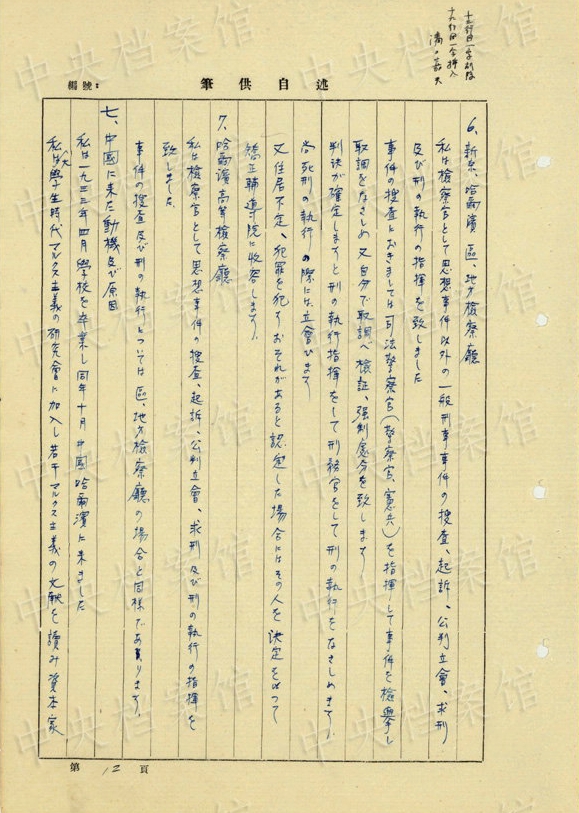 十五行目一字削除
十九行目一字挿入
溝口嘉夫
述自供筆
編號:
6、新京、哈爾濱區、地方檢察廳
私は檢察官として思想事件以外の一般刑事事件の搜査、起訴、公判立會、求刑
及び刑の執行の指揮を致しました
事件の搜査におきましては司法警察官(警察官、憲兵)を指揮して事件を檢擧し
取調をなさしめ又自分で取調べ檢証、强制處分を致します
判決が確定しますと刑の執行指揮をして刑務官をして刑の執行をなさしめます、
尚死刑の執行の際には立會ひます
又住居不定、犯罪を犯すおそれがあると認定した場合にはその人を決定を以つて
矯正輔導院に收容します、
7、哈爾濱高等檢察廳
私は檢察官として思想事件の搜査、起訴、公判立會、求刑及び刑の執行の指揮を
致しました
事件の搜査及び刑の執行については區、地方檢察廳の場合と同様であります、
七、中國に来た動機及び原因
私は一九三三年四月學校を卒業し同年十月中國哈爾濱に来ました
私は大學生時代マルクス主義の研究會に加入し若干マルクス主義の文献を讀み資本家
第 12 頁
中央档案馆